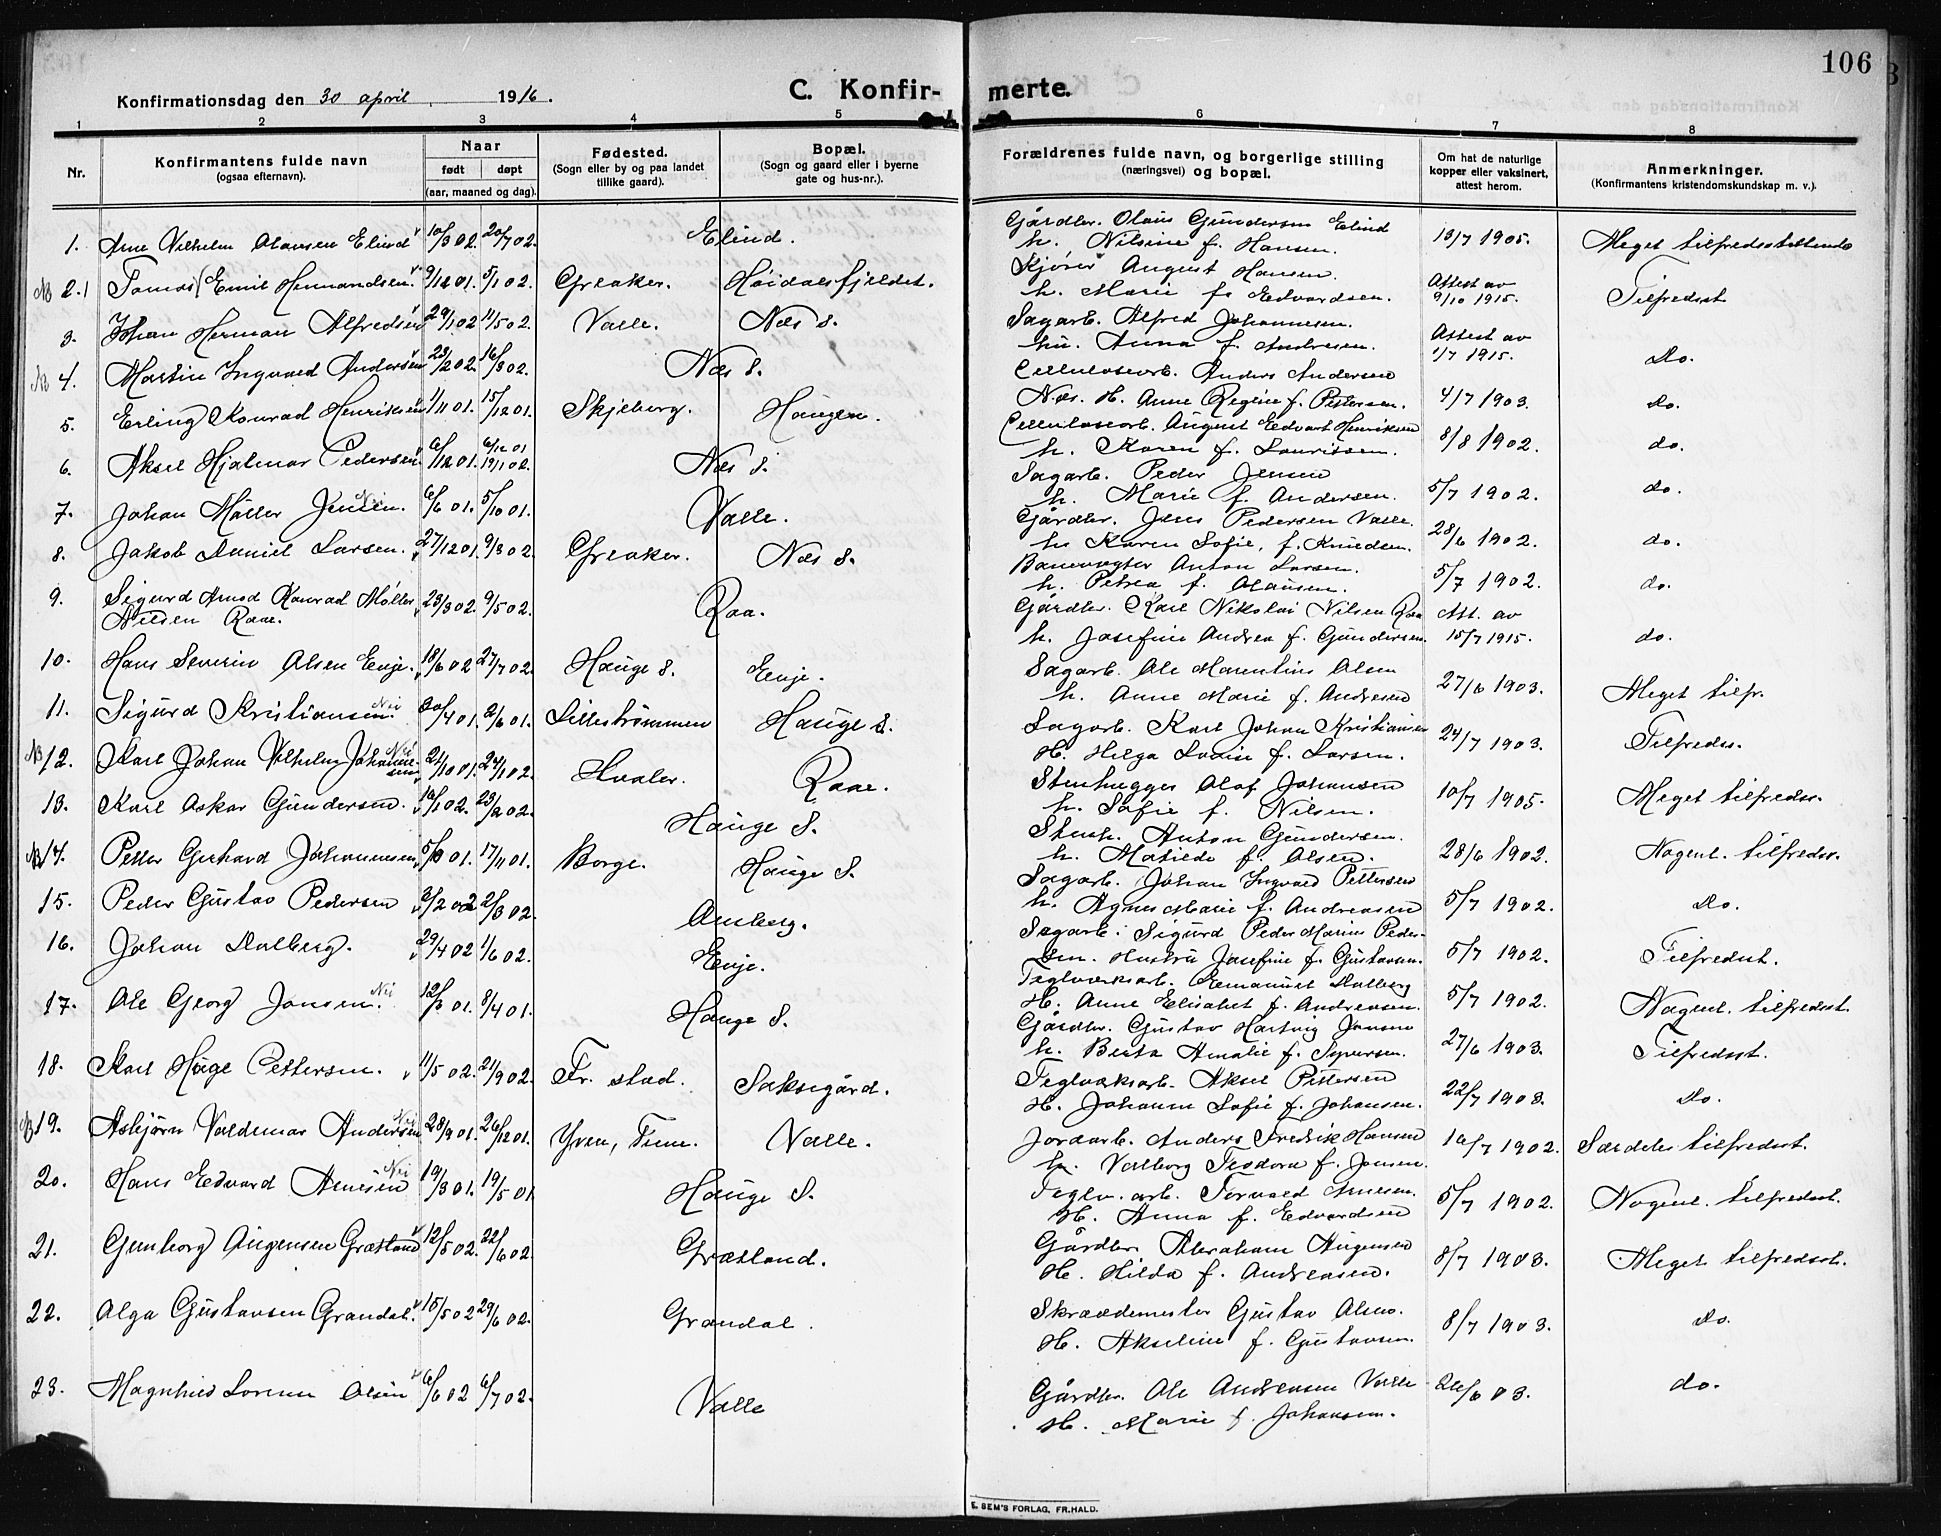 106
Konfirmationsdag den 30 april 1916.
C. Konfirmerte.
1 2 3 4 5 6 7 8
Nr.
Konfirmantens fulde navn
(ogsaa efternavn).
Naar
født døpt
(aar, maaned og dag).
Fødested.
(Sogn eller by og paa landet
tillike gaard).
Bopæl.
(Sogn og gaard eller i byerne
gate og hus-nr.).
Forældrenes fulde navn, og borgerlige stilling
(næringsvei) og bopæl.
Om hat de naturlige
kopper eller vaksinert,
attest herom.
Anmerkninger.
(Konfirmantens kristendomskundskap m. v.).
1. Arne Vilhelm Olausen Elind 10/3 02. 20/7 02. Elind. Gårdbr. Olaus Gundersen Elind
h. Nilsine f. Hansen. 13/7 1905. Meget tilfredsstillende
NB 2. Tomas Emil Hermandsen. 9/12 01. 5/1 02. Greaker. Høidalsfjeldet. Kjører August Hansen.
h. Marie f. Edvardsen. Attest av 9/10 1915. Tilfredsst
3. Johan Herman Alfredsen 29/1 02 11/5 02. Valle. Næs S. Sagarb. Alfred Johannesen.
hu. Anna f. Andresen. Attest av 1/7 1915. Do.
NB 4. Martin Ingvard Andersen 23/2 02. 16/3 02. Næs S. Cellulosearb. Anders Andersen
Næs. H. Anne Regine f. Pettersen. 4/7 1903. do.
5. Erling Konrad Henriksen 1/11 01. 15/12 01. Skjeberg. Haugen. Cellulosearb. August Edvart Henriksen
h. Karen f. Lauritsen. 8/8 1902. do.
6. Aksel Hjalmar Pedersen 6/12 01. 6/12 01 19/1 02. Næs S. Sagarb. Peder Jensen
h. Marie f. Andersen. 5/7 1902. do.
7. Johan Møller Jensen. Nei 6/6 01. 5/10 01. Valle. Gårdbr. Jens Pedersen Valle.
h. Karen Sofie, f. Knudsen. 28/6 1902. do.
8. Jakob Daniel Larsen. 27/12 01. 9/3 02. Greaker. Næs S. Banevogter Anton Larsen.
h. Petrea f. Olausen. 5/7 1902. do.
9. Sigurd Arnod Konrad Møller
Nilsen Raae. 23/3 02. 9/5 02. Raa. Gårdbr. Karl Nikolai Nilsen Raa
h. Josefine Andrea f. Gundersen. Att. av 15/7 1915. do.
10. Hans Severin Olsen Evje. 18/6 02 27/7 02. Hauge S. Evje. Sagarb. Ole Marentius Olsen
h. Anne Marie f. Andresen 27/6 1903. Meget tilfr.
11. Sigurd Kristiansen. Nei 30/4 01. 2/6 01. Lillestrømmen Hauge S. Sagarb. Karl Johan Kristiansen
H. Helga Lovise f. Larsen. 24/7 1903. Tilfredss.
NB 12. Karl Johan Vilhelm Johannesen Nei 21/10 01. 24/1 02. Hvaler. Raae. Stenhugger Olaf Johansen
h. Sofie f. Nilsen. 10/7 1905. Meget tilfredss.
13. Karl Oskar Gundersen. 16/1 02. 23/2 02. Hauge S. Stenh. Anton Gundersen.
h. Matilde f. Olsen. 28/6 1902. Nogenl. tilfredss.
NB 14. Petter Gerhard Johannesen 5/8 01. 17/11 01. Borge. Hauge S. Sagarb. Johan Ingvald Pettersen
h. Agnes Marie f. Andreasen 5/7 1902. Do.
15. Peder Gustav Pedersen 3/2 02 2/3 02. Amberg. Sagarb. Sigurd Peder Marius Pedersen.
Hustru Josefine f. Gustavsen. 5/7 1902. Tilfredsst.
16. Johan Dalberg. 29/4 02 1/6 02. Evje. Teglverksarb. Emanuel Dalberg
H. Anne Elisabet f. Andreasen. 5/7 1902. Nogenl. tilfredsst.
17. Ole Georg Jansen. Nei 12/3 01. 8/4 01. Hauge S. Gårdbr. Gustav Hartvig Jansen
h. Berta Amalie f. Syversen. 27/6 1903. Tilfredsst.
18. Karl Høge Pettersen. 11/5 02. 21/9 02. Fr. stad. Saksegård. Teglverksarb. Aksel Pettersen
H. Johanne Sofie f. Johansen. 22/7 1903. Do.
NB 19. Asbjørn Valdemar Andersen Nei 28/9 01. 26/12 01. Yven, Tune. Valle. Jordarb. Anders Fredrik Hansen
h. Valborg Teodora f. Jansen. 16/7 1902. Særdeles tilfredsst.
20. Hans Edvard Arnesen Nei 19/3 01. 19/5 01 Hauge S. Teglv. arb. Torvald Arnesen.
H. Anna f. Edvardsen 5/7 1902. Nogenl. tilfredsst.
21. Gunborg Augensen Græsland 12/5 02. 22/6 02. Græsland. Gårdbr. Abraham Augensen
H. Hilda f. Andreasen. 8/7 1903. Meget tilfredsst.
22. Olga Gustavsen Grøndal. 15/5 02 29/6 02. Grøndal. Skræddemester Gustav Olsen.
H. Akseline f. Gustavsen. 8/7 1903. Do.
23. Magnhild Lorense Olsen 6/6 02 6/7 02. Valle Gårdbr. Ole Andreasen Valle
H. Marie f. Johansen. 26/6 03. do.
E. SEM'S FORLAG, FR.HALD.